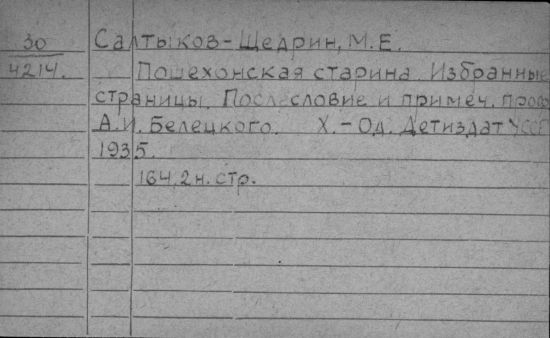 30
4214.
Салтыков-Щедрин, М.Е.
Пошехонская старина. Избранные
страницы. Послесловие и примеч. проф.
А.И. Белецкого. Х.-Од. Детиздат УССР
1935.
164,2 н. стр.